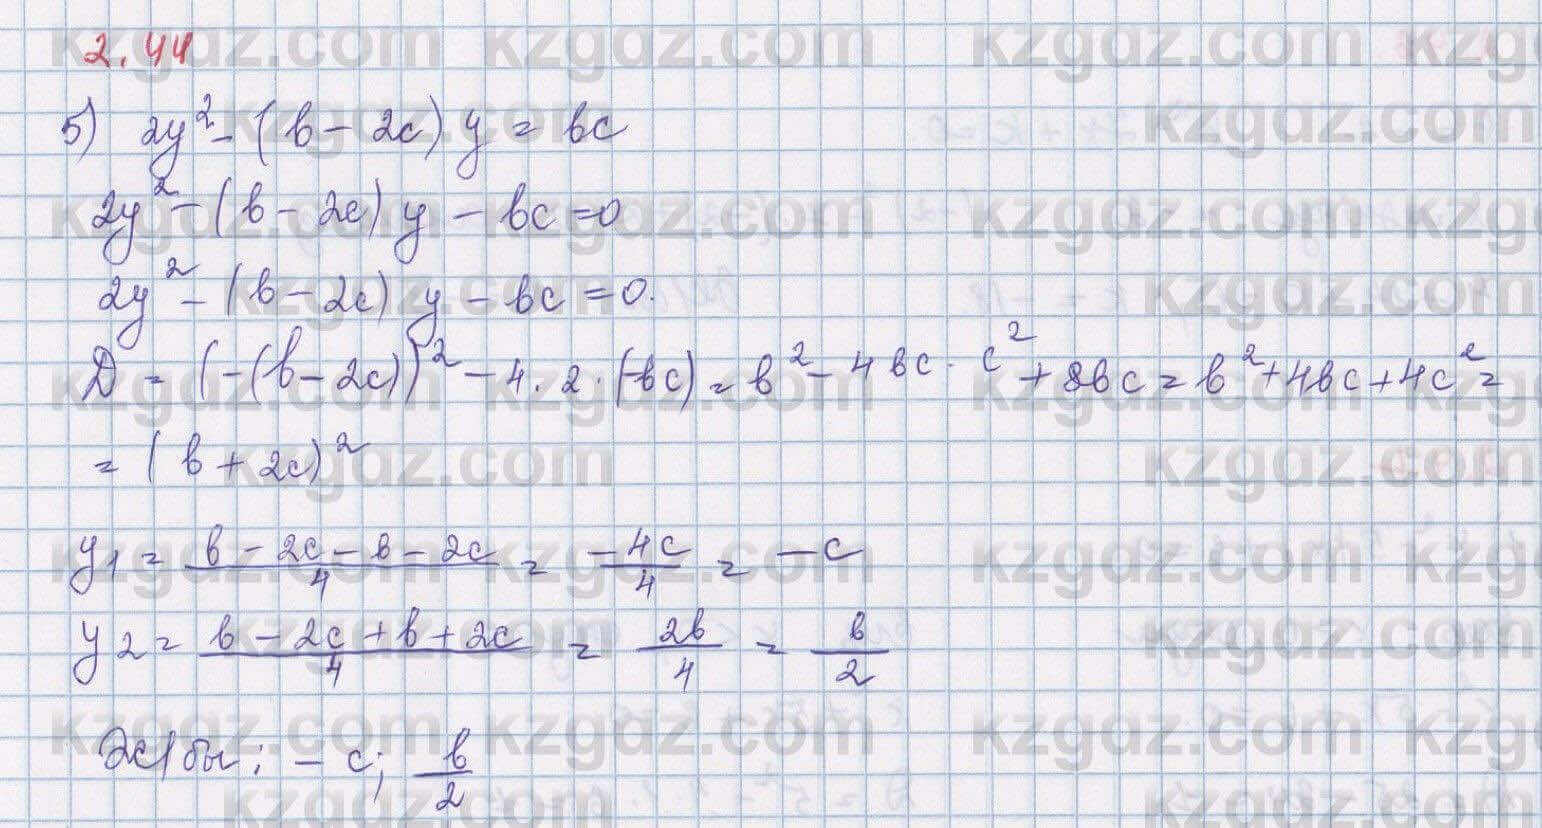 2.44
5) 2y² - (b - 2c) y = bc
2y² - (b - 2c) y - bc = 0
2y² - (b - 2c) y - bc = 0.
D = (-(b - 2c))² - 4 · 2 · (-bc) = b² - 4bc · c² + 8bc = b² + 4bc + 4c² =
= (b + 2c)²
y1 = (b - 2c - b - 2c)/4 = -4c/4 = -c
y2 = (b - 2c + b + 2c)/4 = 2b/4 = b/2
Ж/бы: - c; b/2
kzgdz.com